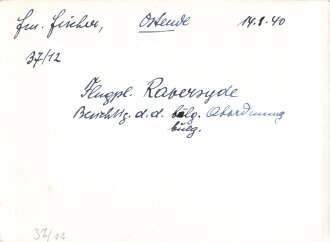 fm. Fischer, Ostende 14.8.40
37/12
Flugpl. Raversyde
Besichtg. d. d. bulg. Abordnung
bulg.
37/12